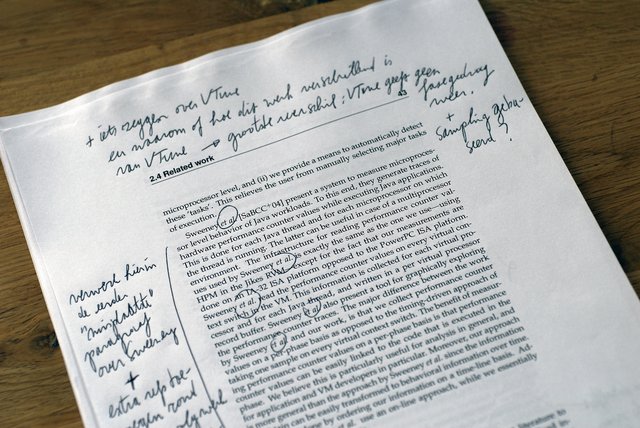 + iets zeggen over VTune
en waarom of hoe dit werk verschillend is
van VTune → grootste verschil: VTune geeft geen
fasegedrag
weer.
+
Sampling geba-
seerd?
63
2.4 Related work
microprocessor level, and (ii) we provide a means to automatically detect
these 'tasks'. This relieves the user from manually selecting major tasks
of execution.
Sweeney et al. [SHCC+04] present a system to measure microproces-
sor level behavior of Java workloads. To this end, they generate traces of
hardware performance counter values while executing Java applications.
This is done for each Java thread and for each microprocessor on which
the thread is running. The latter can be useful in case of a multiprocessor
environment. The infrastructure for reading performance counter val-
ues used by Sweeney et al. is exactly the same as the one we use—using
HPM in the Jikes RVM—except for the fact that our measurements are
done on an IA-32 ISA platform opposed to the PowerPC ISA platform.
Sweeney et al. read the performance counter values on every virtual con-
text switch in the VM. This information is collected for each virtual pro-
cessor and for each Java thread, and written in a per virtual processor
record buffer. Sweeney et al. also present a tool for graphically exploring
the performance counter traces. The major difference between the work
by Sweeney et al. and our work, is that we collect performance counter
values on a per-phase basis as opposed to the timing-driven approach of
taking one sample on every virtual context switch. The benefit of measur-
ing performance counter values on a per-phase basis is that performance
counter values can be easily linked to the code that is executed in the
phase. We believe this is particularly useful for analysis in general, and
for application and VM developers in particular. Moreover, our approach
is more general than the approach by Sweeney et al. since the information
can be easily transformed to behavioral information over time.
done by ordering our information on a time-line basis. Ad-
et al. use an on-line approach, while we essentially
literature to
verwerk hierin
de eerder
paragraaf
over Sweeney
+
extra ref toe-
voegen rond